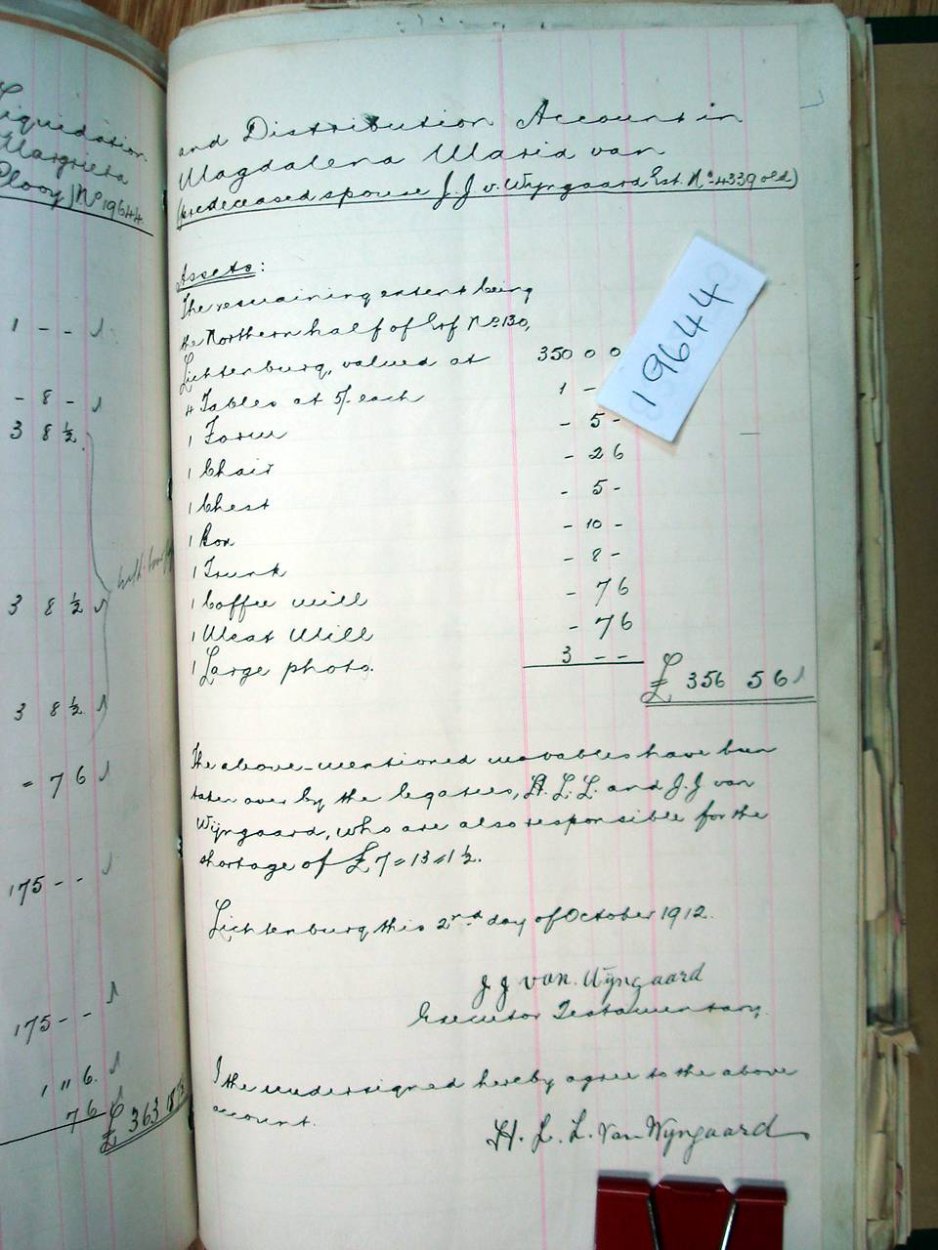 Liquidation
Margrieta
Plooy No 19644
1 - -
- 8 -
3 8 ½
3 8 ½
3 8 ½
- 7 6
175 - -
175 - -
1 " 6
7 6
£ 363 18 7½
and Distribution Account in
Magdalena Maria van
(predeceased spouse J. J. v. Wyngaard Est. No 4339 old)
Assets:
The remaining extent being
the Northern half of Erf No 130,
Lichtenburg, valued at 350 0 0
4 Tables at 5/- each 1 -
1 Form - 5 -
1 Chair - 2 6
1 Chest - 5 -
1 Box - 10 -
1 Trunk - 8 -
1 Coffee mill - 7 6
1 Meat Mill - 7 6
1 Large photo. 3 - -
£ 356 5 6
19644
The above-mentioned movables have been
taken over by the legatees, H. L. L. and J. J. van
Wijngaard, who are also responsible for the
shortage of £7=13=1½.
Lichtenburg this 2nd day of October 1912.
J J van Wyngaard
Executor Testamentary.
I the undersigned hereby agree to the above
account.
H. L. L. van Wyngaard